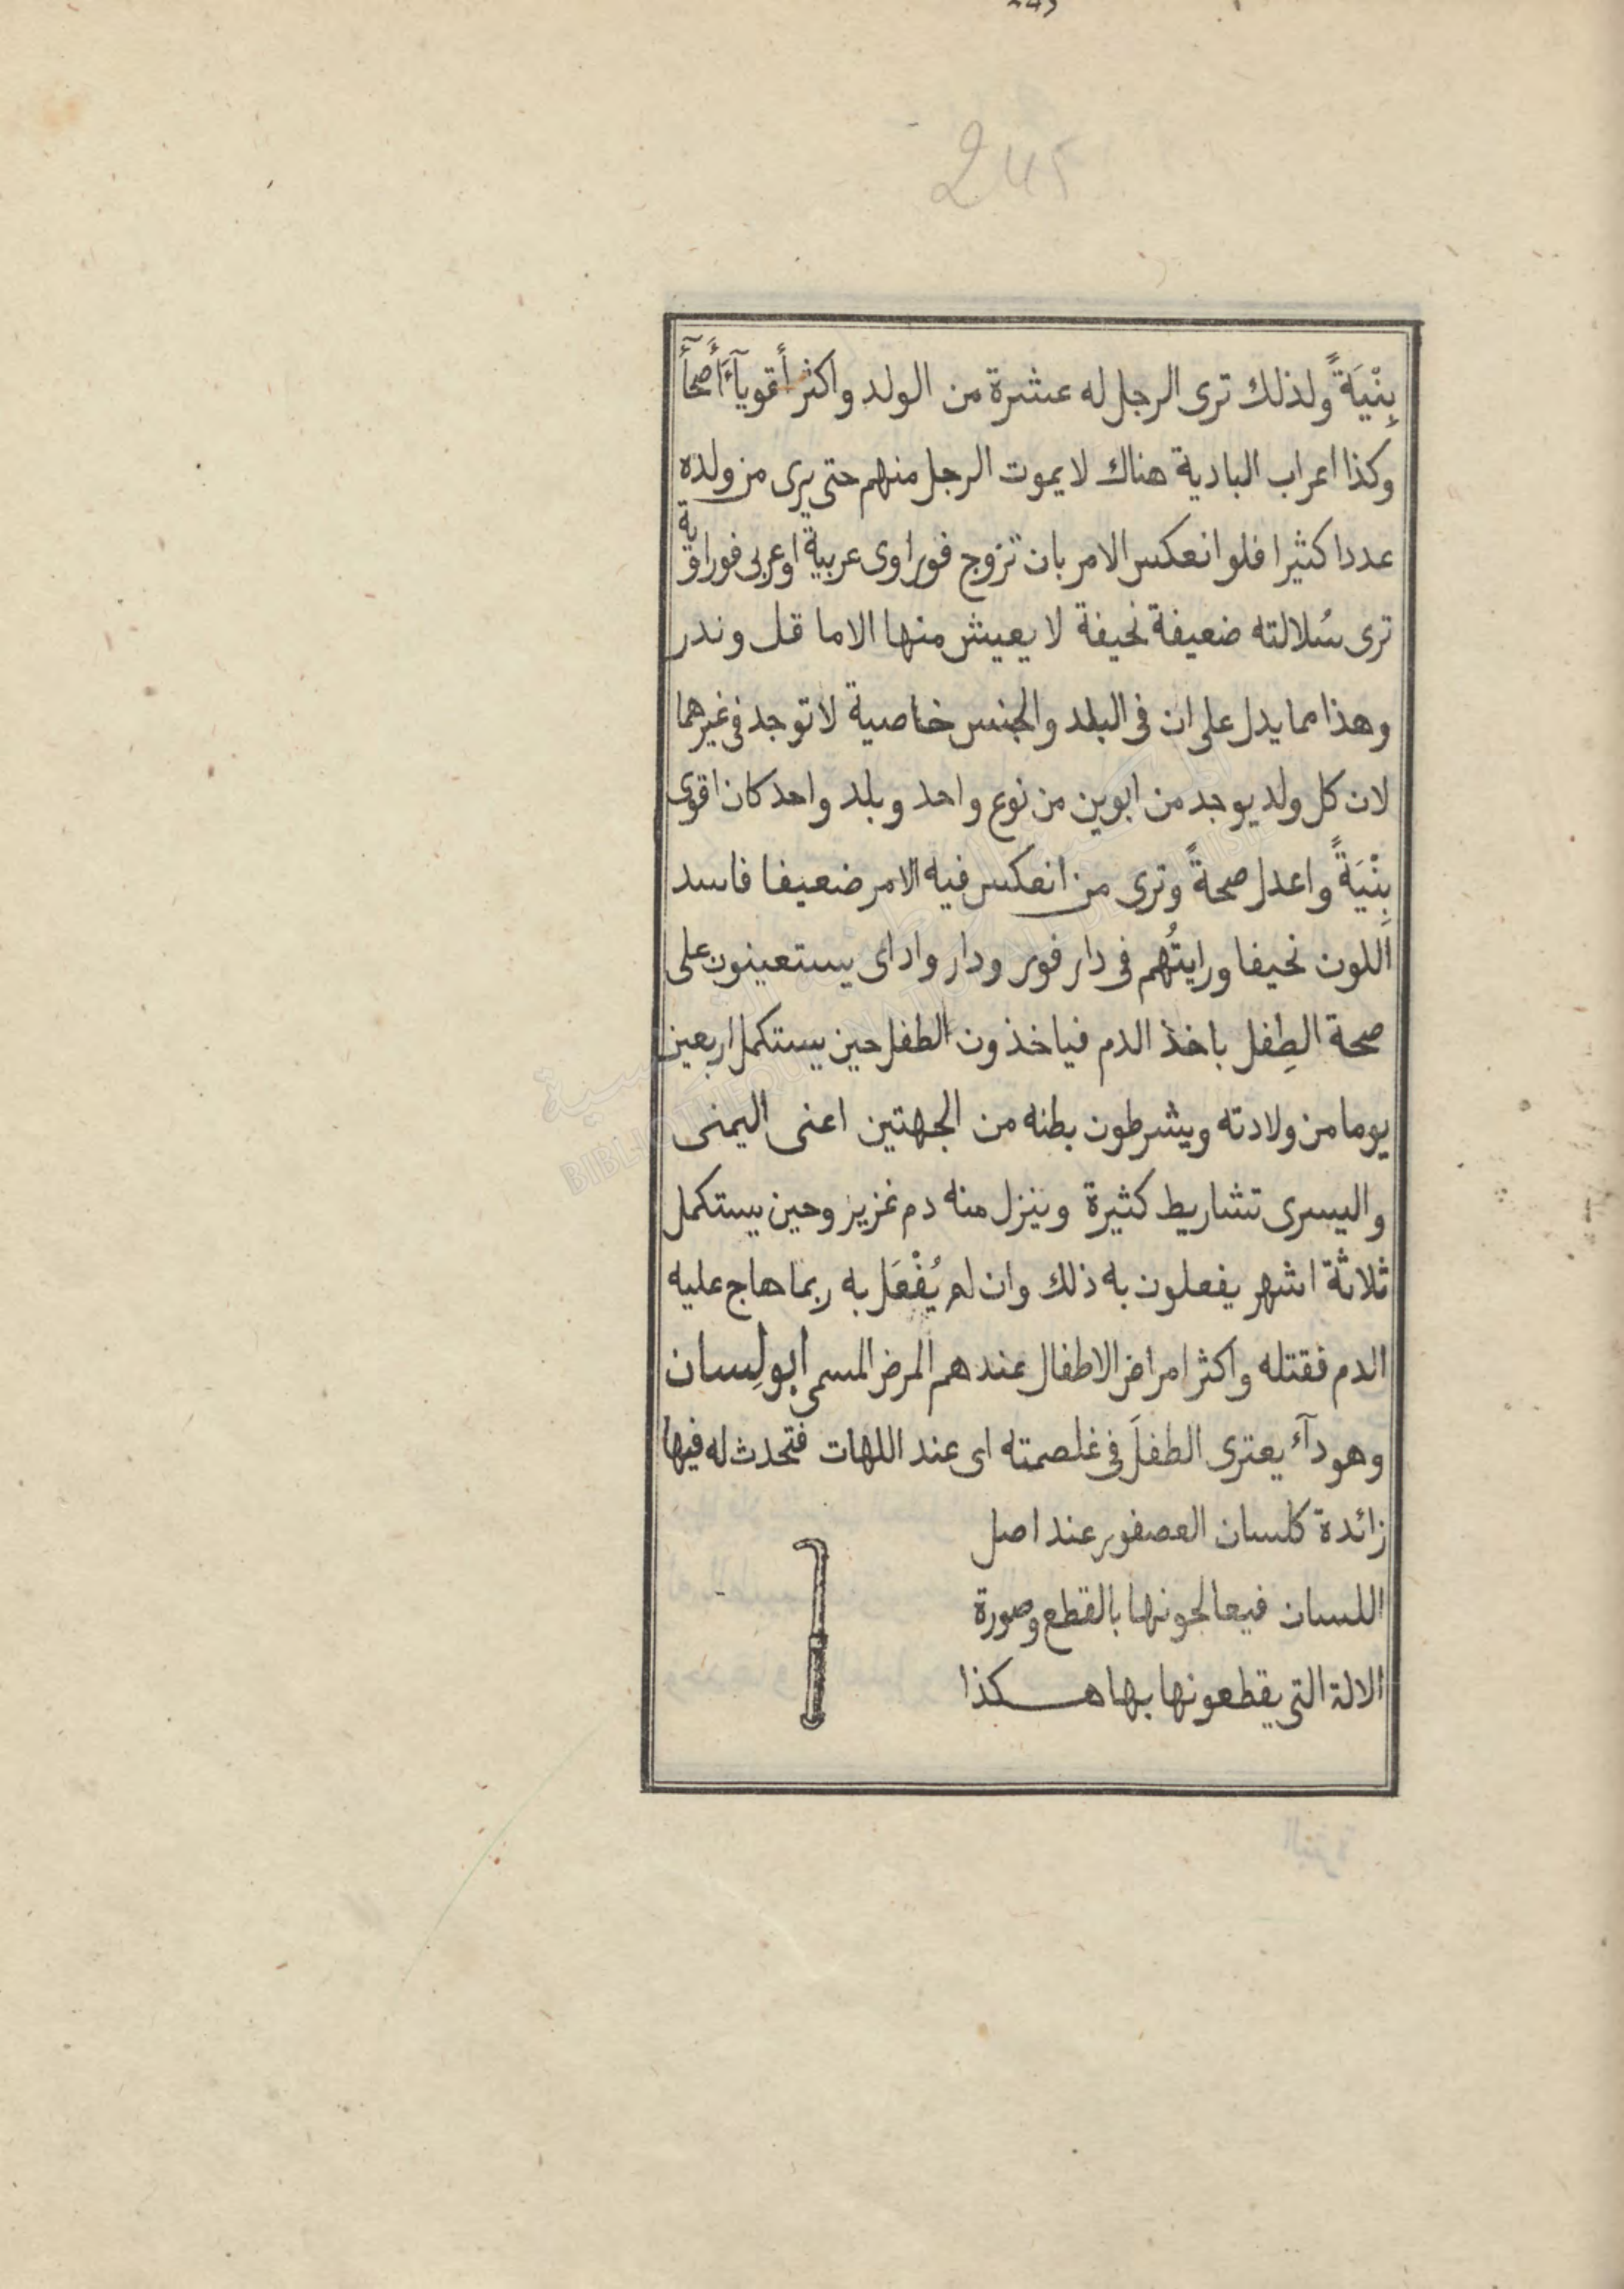 245
بِنْيَةً ولذلك ترى الرجل له عشرة من الولد واكثر أقوياءَ أصحاءَ
وكذا اعراب البادية هناك لا يموت الرجل منهم حتى يرى من ولده
عددا كثيرا فلو انعكس الامر بان تزوج فوراوى عربية او عربى فوراوية
ترى سُلالته ضعيفة نحيفة لا يعيش منها الا ما قل وندر
وهذا مما يدل على ان فى البلد والجنس خاصية لا توجد فى غيرهما
لان كل ولد يوجد من ابوين من نوع واحد وبلد واحد كان اقوى
بِنْيَةً واعدل صحةً وترى من انعكس فيه الامر ضعيفا فاسد
اللون نحيفا ورايتُهم فى دار فور ودار واداى يستعينون على
صحة الطِفل باخذ الدم فياخذون الطفل حين يستكمل اربعين
يوما من ولادته ويشرطون بطنه من الجهتين اعنى اليمنى
واليسرى تشاريط كثيرة وينزل منه دم غزير وحين يستكمل
ثلاثة اشهر يفعلون به ذلك وان لم يُفْعَل به ربما هاج عليه
الدم فقتله واكثر امراض الاطفال عندهم المرض المسمى ابو لِسان
وهو دآء يعترى الطفلَ فى غلصمته اى عند اللهات فتحدث له فيها
زائدة كلسان العصفور عند اصل
اللسان فيعالجونها بالقطع وصورة
الالة التى يقطعونها بها هكذا